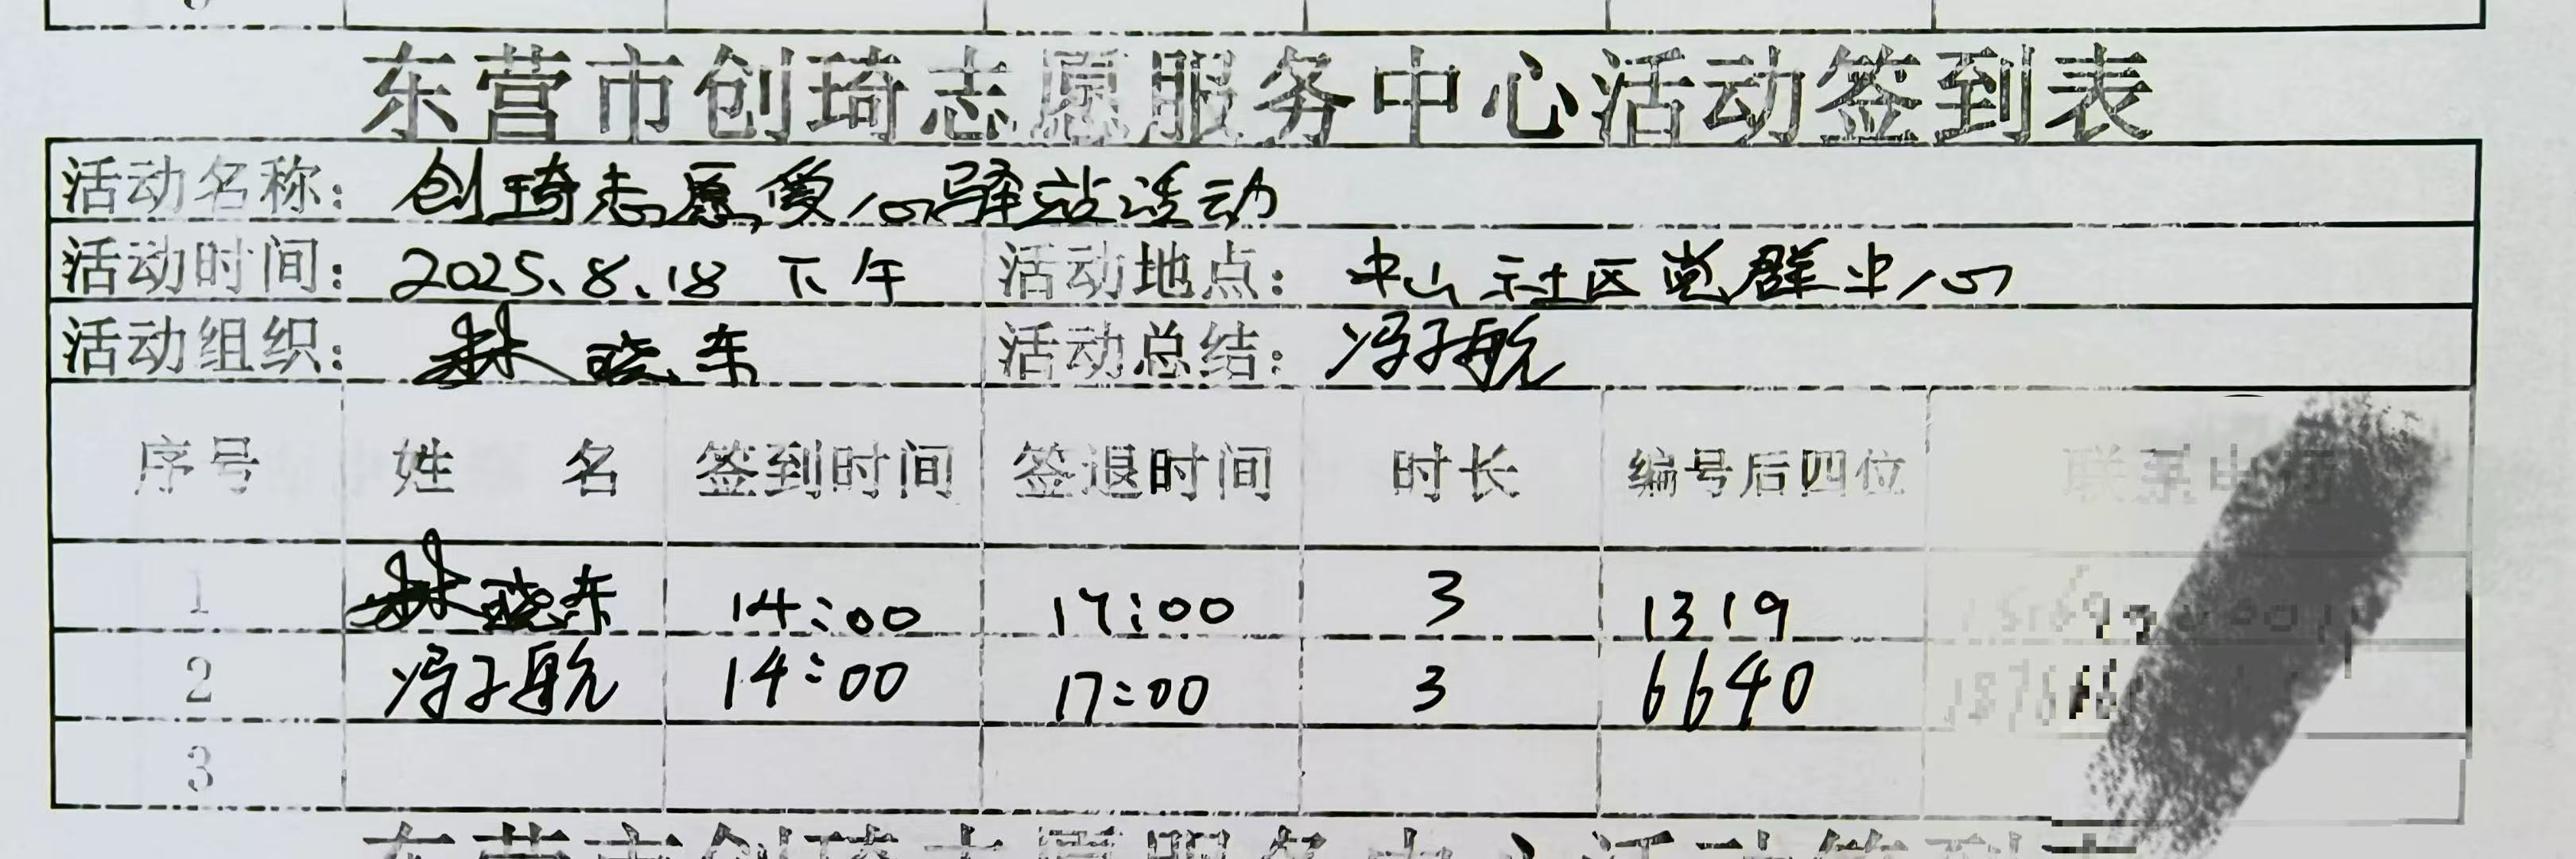 东营市创琦志愿服务中心活动签到表
活动名称: 创琦志愿爱心驿站活动
活动时间: 2025.8.18 下午 活动地点: 中山社区党群中心
活动组织: 林晓东 活动总结: 冯子航
序号 姓 名 签到时间 签退时间 时长 编号后四位 联系电
1 林晓东 14:00 17:00 3 1319
2 冯子航 14:00 17:00 3 6640
3